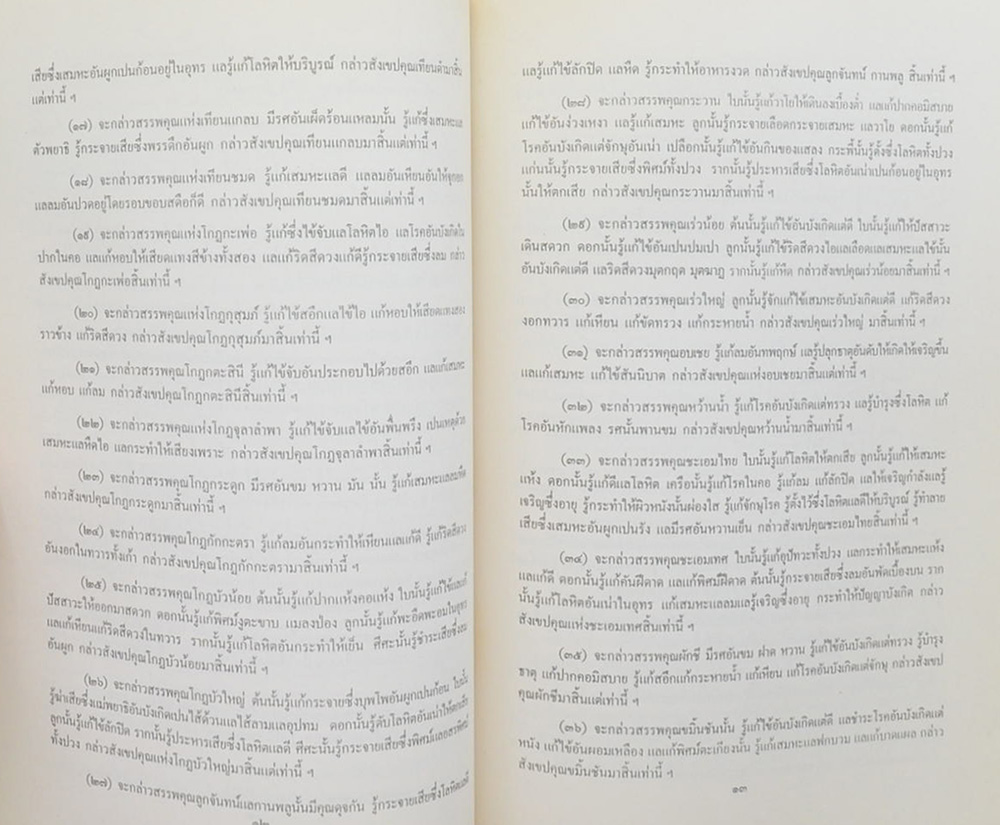 เสียซึ่งเสมหะอันผูกเปนก้อนอยู่ในอุทร แลรู้แก้โลหิตให้บริบูรณ์ กล่าวสังเขปคุณเทียนดำมาสิ้น
แต่เท่านี้ ฯ
(๑๗) จะกล่าวสรรพคุณแห่งเทียนแกลบ มีรสอันเผ็ดร้อนแหลมนั้น รู้แก้ซึ่งเสมหะแล
ตัวพยาธิ รู้กระจายเสียซึ่งพรรดึกอันผูก กล่าวสังเขปคุณเทียนแกลบมาสิ้นแต่เท่านี้ ฯ
(๑๘) จะกล่าวสรรพคุณแห่งเทียนชมด รู้แก้เสมหะแลดี แลลมอันเทียนอันให้จุกอก
แลลมอันปวดอยู่โดยรอบขอบสดือก็ดี กล่าวสังเขปคุณเทียนชมดมาสิ้นแต่เท่านี้ ฯ
(๑๙) จะกล่าวสรรพคุณแห่งโกฎกะเพ่อ รู้แก้ซึ่งไข้จับแลโลหิตไอ แลโรคอันบังเกิดใน
ปากในคอ แลแก้หอบให้เสียดแทงสีข้างทั้งสอง แลแก้ริดสีดวงแก้ดีรู้กระจายเสียซึ่งลม กล่าว
สังเขปคุณโกฎกะเพ่อสิ้นเท่านี้ ฯ
(๒๐) จะกล่าวสรรพคุณแห่งโกฎกุสุมภ์ รู้แก้ไข้สอึกแลไข้ไอ แก้หอบให้เสียดแทงสอง
ราวข้าง แก้ริดสีดวง กล่าวสังเขปคุณโกฎกุสุมภ์มาสิ้นเท่านี้ ฯ
(๒๑) จะกล่าวสรรพคุณโกฎกตะสินี รู้แก้ไข้จับอันประกอบไปด้วยสอึก แลแก้เสมหะ
แก้หอบ แก้ลม กล่าวสังเขปคุณโกฎกตะสินีสิ้นเท่านี้ ฯ
(๒๒) จะกล่าวสรรพคุณแห่งโกฎจุลาลำพา รู้แก้ไข้จับแลไข้อันพื่นพรึง เปนเหตุด้วย
เสมหะแลหืดไอ แลกระทำให้เสียงเพราะ กล่าวสังเขปคุณโกฎจุลาลำพาสิ้นเท่านี้ ฯ
(๒๓) จะกล่าวสรรพคุณโกฎกระดูก มีรสอันขม หวาน มัน นั้น รู้แก้เสมหะแลลมหืด
กล่าวสังเขปคุณโกฎกระดูกมาสิ้นเท่านี้ ฯ
(๒๔) จะกล่าวสรรพคุณโกฎกักกะตรา รู้แก้ลมอันกระทำให้เหียนแลแก้ดี รู้แก้ริดสีดวง
อันงอกในทวารทั้งเก้า กล่าวสังเขปคุณโกฎกักกะตรามาสิ้นเท่านี้ ฯ
(๒๕) จะกล่าวสรรพคุณโกฎบัวน้อย ต้นนั้นรู้แก้ปากแห้งคอแห้ง ใบนั้นรู้แก้ไข้แลแก้
ปัสสาวะให้ออกมาสดวก ดอกนั้นรู้แก้พิศม์งูตะขาบ แมลงป่อง ลูกนั้นรู้แก้พะอืดพะอมในอุทร
แลแก้เหียนแก้ริดสีดวงในทวาร รากนั้นรู้แก้โลหิตอันกระทำให้เย็น ศีศะนั้นรู้ชำระเสียซึ่งลม
อันผูก กล่าวสังเขปคุณโกฎบัวน้อยมาสิ้นเท่านี้ ฯ
(๒๖) จะกล่าวสรรพคุณโกฎบัวใหญ่ ต้นนั้นรู้แก้กระจายซึ่งบุพโพอันผูกเปนก้อน ใบนั้น
รู้ฆ่าเสียซึ่งแม่พยาธิอันบังเกิดเปนไส้ด้วนแลไส้ลามแลอุปทม ดอกนั้นรู้ดับโลหิตอันเน่าให้ตกเสีย
ลูกนั้นรู้แก้ไข้ลักปิด รากนั้นรู้ประหารเสียซึ่งโลหิตแลดี ศีศะนั้นรู้กระจายเสียซึ่งพิศม์แลอสรพิศม์
ทั้งปวง กล่าวสังเขปคุณแห่งโกฎบัวใหญ่มาสิ้นแต่เท่านี้ ฯ
(๒๗) จะกล่าวสรรพคุณลูกจันทน์แลกานพลูนั้นมีคุณดุจกัน รู้กระจายเสียซึ่งโลหิตแลดี
๑๒
แลรู้แก้ไข้ลักปิด แลหืด รู้กระทำให้อาหารงวด กล่าวสังเขปคุณลูกจันทน์ กานพลู สิ้นเท่านี้ ฯ
(๒๘) จะกล่าวสรรพคุณกระวาน ใบนั้นรู้แก้วาโยให้เดินลงเบื้องต่ำ แลแก้ปากคอมิสบาย
แก้ไข้อันง่วงเหงา แลรู้แก้เสมหะ ลูกนั้นรู้กระจายเลือดกระจายเสมหะ แลวาโย ดอกนั้นรู้แก้
โรคอันบังเกิดแต่จักษุอันเน่า เปลือกนั้นรู้แก้ไข้อันกินของแสลง กระพี้นั้นรู้ตั้งซึ่งโลหิตทั้งปวง
แก่นนั้นรู้กระจายเสียซึ่งพิศม์ทั้งปวง รากนั้นรู้ประหารเสียซึ่งโลหิตอันเน่าเปนก้อนอยู่ในอุทร
นั้นให้ตกเสีย กล่าวสังเขปคุณกระวานมาสิ้นเท่านี้ ฯ
(๒๙) จะกล่าวสรรพคุณเร่วน้อย ต้นนั้นรู้แก้ไข้อันบังเกิดแต่ดี ใบนั้นรู้แก้ให้ปัสสาวะ
เดินสดวก ดอกนั้นรู้แก้ไข้อันเปนปมเปา ลูกนั้นรู้แก้ไข้ริดสีดวงไอแลเลือดแลเสมหะแลไข้นั้น
อันบังเกิดแต่ดี แลริดสีดวงมุตกฤต มุตฆาฏ รากนั้นรู้แก้หืด กล่าวสังเขปคุณเร่วน้อยมาสิ้นเท่านี้ ฯ
(๓๐) จะกล่าวสรรพคุณเร่วใหญ่ ลูกนั้นรู้จักแก้ไข้เสมหะอันบังเกิดแต่ดี แก้ริดสีดวง
งอกทวาร แก้เหียน แก้ขัดทรวง แก้กระหายน้ำ กล่าวสังเขปคุณเร่วใหญ่ มาสิ้นเท่านี้ ฯ
(๓๑) จะกล่าวสรรพคุณอบเชย รู้แก้ลมอันทพฤกษ์ แลรู้ปลุกธาตุอันดับให้เกิดให้เจริญขึ้น
แลแก้เสมหะ แก้ไข้สันนิบาต กล่าวสังเขปคุณแห่งอบเชยมาสิ้นแต่เท่านี้ ฯ
(๓๒) จะกล่าวสรรพคุณหว้านน้ำ รู้แก้โรคอันบังเกิดแต่ทรวง แลรู้บำรุงซึ่งโลหิต แก้
โรคอันหักแพลง รศนั้นพานขม กล่าวสังเขปคุณหว้านน้ำมาสิ้นเท่านี้ ฯ
(๓๓) จะกล่าวสรรพคุณชะเอมไทย ใบนั้นรู้แก้โลหิตให้ตกเสีย ลูกนั้นรู้แก้ให้เสมหะ
แห้ง ดอกนั้นรู้แก้ดีแลโลหิต เครือนั้นรู้แก้โรคในคอ รู้แก้ลม แก้ลักปิด แลให้เจริญกำลังแลรู้
เจริญซึ่งอายุ รู้กระทำให้ผิวหนังนั้นผ่องใส รู้แก้จักษุโรค รู้ตั้งไว้ซึ่งโลหิตแลดีให้บริบูรณ์ รู้ทำลาย
เสียซึ่งเสมหะอันผูกเปนรัง แลมีรสอันหวานเย็น กล่าวสังเขปคุณชะเอมไทยสิ้นเท่านี้ ฯ
(๓๔) จะกล่าวสรรพคุณชะเอมเทศ ใบนั้นรู้แก้อุปัทวะทั้งปวง แลกระทำให้เสมหะแห้ง
แลแก้ดี ดอกนั้นรู้แก้คันฝีดาด แลแก้พิศม์ฝีดาด ต้นนั้นรู้กระจายเสียซึ่งลมอันพัดเบื้องบน ราก
นั้นรู้แก้โลหิตอันเน่าในอุทร แก้เสมหะแลลมแลรู้เจริญซึ่งอายุ กระทำให้ปัญญาบังเกิด กล่าว
สังเขปคุณแห่งชะเอมเทศสิ้นเท่านี้ ฯ
(๓๕) จะกล่าวสรรพคุณผักชี มีรสอันขม ฝาด หวาน รู้แก้ไข้อันบังเกิดแต่ทรวง รู้บำรุง
ธาตุ แก้ปากคอมิสบาย รู้แก้สอึกแก้กระหายน้ำ แก้เหียน แก้โรคอันบังเกิดแต่จักษุ กล่าวสังเขป
คุณผักชีมาสิ้นแต่เท่านี้ ฯ
(๓๖) จะกล่าวสรรพคุณขมิ้นชันนั้น รู้แก้ไข้อันบังเกิดแต่ดี แลชำระโรคอันบังเกิดแต่
หนัง แก้ไข้อันผอมเหลือง แลแก้พิศม์ตะเกียงนั้น รู้แก้เสมหะแลฟกบวม แลแก้บาดแผล กล่าว
สังเขปคุณขมิ้นชันมาสิ้นเท่านี้ ฯ
๑๓